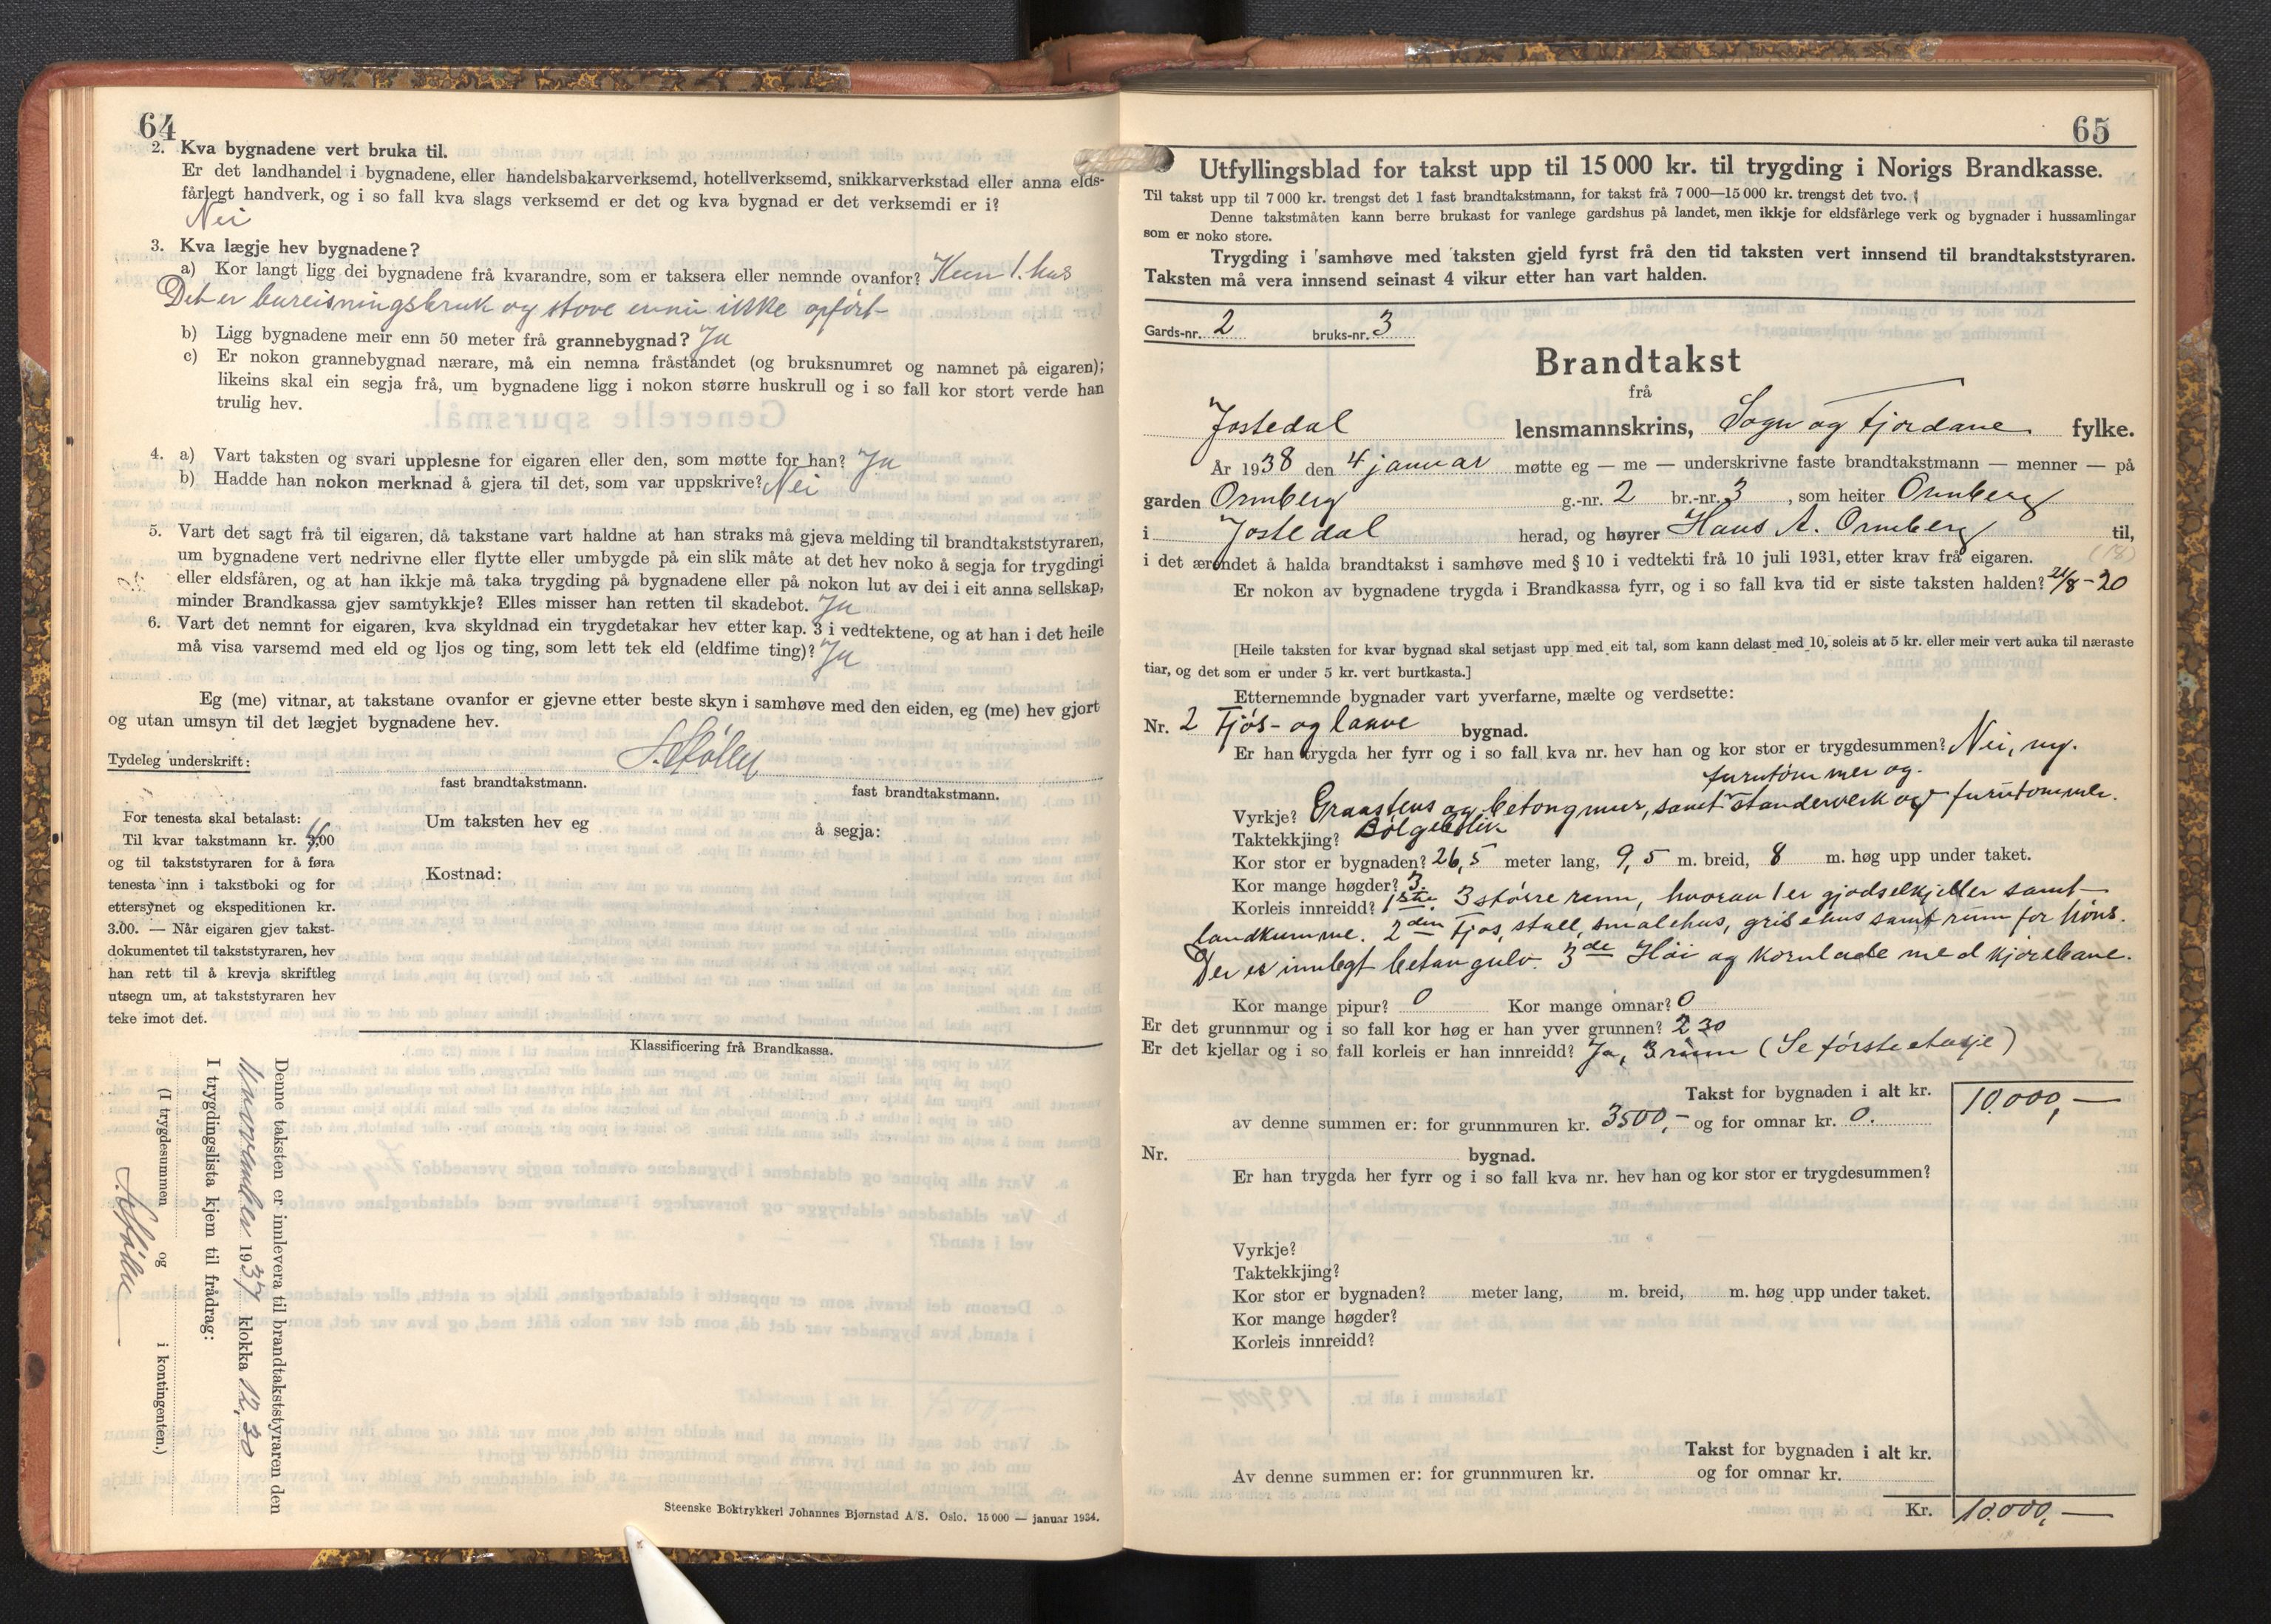 64
2. Kva bygnadene vert bruka til.
Er det landhandel i bygnadene, eller handelsbakarverksemd, hotellverksemd, snikkarverkstad eller anna elds-
fårlegt handverk, og i so fall kva slags verksemd er det og kva bygnad er det verksemdi er i?
Nei
3. Kva lægje hev bygnadene?
a) Kor langt ligg dei bygnadene frå kvarandre, som er taksera eller nemnde ovanfor? Kun 1. hus
Det er bureisningsbruk og stove ennu ikke opfört
b) Ligg bygnadene meir enn 50 meter frå grannebygnad? Ja
c) Er nokon grannebygnad nærare, må ein nemna fråstandet (og bruksnumret og namnet på eigaren);
likeins skal ein segja frå, um bygnadene ligg i nokon større huskrull og i so fall kor stort verde han
trulig hev.
4. a) Vart taksten og svari upplesne for eigaren eller den, som møtte for han? Ja
b) Hadde han nokon merknad å gjera til det, som var uppskrive? Nei
5. Vart det sagt frå til eigaren, då takstane vart haldne at han straks må gjeva melding til brandtakststyraren,
um bygnadene vert nedrivne eller flytte eller umbygde på ein slik måte at det hev noko å segja for trygdingi
eller eldsfåren, og at han ikkje må taka trygding på bygnadene eller på nokon lut av dei i eit anna sellskap,
minder Brandkassa gjev samtykkje? Elles misser han retten til skadebot. Ja
6. Vart det nemnt for eigaren, kva skyldnad ein trygdetakar hev etter kap. 3 i vedtektene, og at han i det heile
må visa varsemd med eld og ljos og ting, som lett tek eld (eldfime ting)? Ja
Eg (me) vitnar, at takstane ovanfor er gjevne etter beste skyn i samhøve med den eiden, eg (me) hev gjort
og utan umsyn til det lægjet bygnadene hev.
Tydeleg underskrift:
fast brandtakstmann.
fast brandtakstmann.
For tenesta skal betalast:
Til kvar takstmann kr. 3,00
og til takststyraren for å føra
tenesta inn i takstboki og for
ettersynet og ekspeditionen kr.
3.00. — Når eigaren gjev takst-
dokumentet til takststyraren, hev
han rett til å krevja skriftleg
utsegn um, at takststyraren hev
teke imot det.
Um taksten hev eg å segja:
Kostnad:
Klassificering frå Brandkassa.
Denne taksten er innlevera til brandtakststyraren den
11 november 1937 klokka 12,30
I trygdingslista kjem til frådrag:
(I trygdesummen og i kontingenten.)
Steenske Boktrykkeri Johannes Bjørnstad A/S. Oslo. 15 000 — januar 1934.
65
Utfyllingsblad for takst upp til 15 000 kr. til trygding i Norigs Brandkasse.
Til takst upp til 7 000 kr. trengst det 1 fast brandtakstmann, for takst frå 7 000—15 000 kr. trengst det tvo.
Denne takstmåten kann berre brukast for vanlege gardshus på landet, men ikkje for eldsfårlege verk og bygnader i hussamlingar
som er noko store.
Trygding i samhøve med taksten gjeld fyrst frå den tid taksten vert innsend til brandtakststyraren.
Taksten må vera innsend seinast 4 vikur etter han vart halden.
Gards-nr. 2 bruks-nr. 3
Brandtakst
frå
Jostedal lensmannskrins, Sogn og Fjordane fylke.
År 1938 den 4 januar møtte eg — me — underskrivne faste brandtakstmann — menner — på
garden Ormberg g.-nr. 2 br.-nr. 3, som heiter Ormberg
i Jostedal herad, og høyrer Hans A. Ormberg til,
i det ærendet å halda brandtakst i samhøve med § 10 i vedtekti frå 10 juli 1931, etter krav frå eigaren.
(18)
Er nokon av bygnadene trygda i Brandkassa fyrr, og i so fall kva tid er siste taksten halden? 21/8-20
[Heile taksten for kvar bygnad skal setjast upp med eit tal, som kann delast med 10, soleis at 5 kr. eller meir vert auka til næraste
tiar, og det som er under 5 kr. vert burtkasta.]
Etternemnde bygnader vart yverfarne, mælte og verdsette:
Nr. 2 Fjös- og laave bygnad.
Er han trygda her fyrr og i so fall kva nr. hev han og kor stor er trygdesummen? Nei, ny.
furutömmer og
Vyrkje? Graastens og betongmur, samt standerverk og furutömmer.
Taktekkjing? Bölgeblik
Kor stor er bygnaden? 26,5 meter lang, 9,5 m. breid, 8 m. høg upp under taket.
Kor mange høgder? 3.
Korleis innreidd? 1ste. 3 större rum, hvorav 1 er gjödselkjeller samt
landkumme. 2den Fjös, stall, smalehus, grisehus samt rum for höns.
Der er innlegt betongulv. 3de Höi og kornlade med kjörebane.
Kor mange pipur? 0 Kor mange omnar? 0
Er det grunnmur og i so fall kor høg er han yver grunnen? 2 30
Er det kjellar og i so fall korleis er han innreidd? Ja, 3 rum (Se förste etasje)
Takst for bygnaden i alt kr. 10.000,—
av denne summen er: for grunnmuren kr. 3500,- og for omnar kr. 0.
Nr. bygnad.
Er han trygda her fyrr og i so fall kva nr. hev han og kor stor er trygdesummen?
Vyrkje?
Taktekkjing?
Kor stor er bygnaden? meter lang, m. breid, m. høg upp under taket.
Kor mange høgder?
Korleis innreidd?
Takst for bygnaden i alt kr.
Av denne summen er: for grunnmuren kr. og for omnar kr.
Kr. 10.000,—